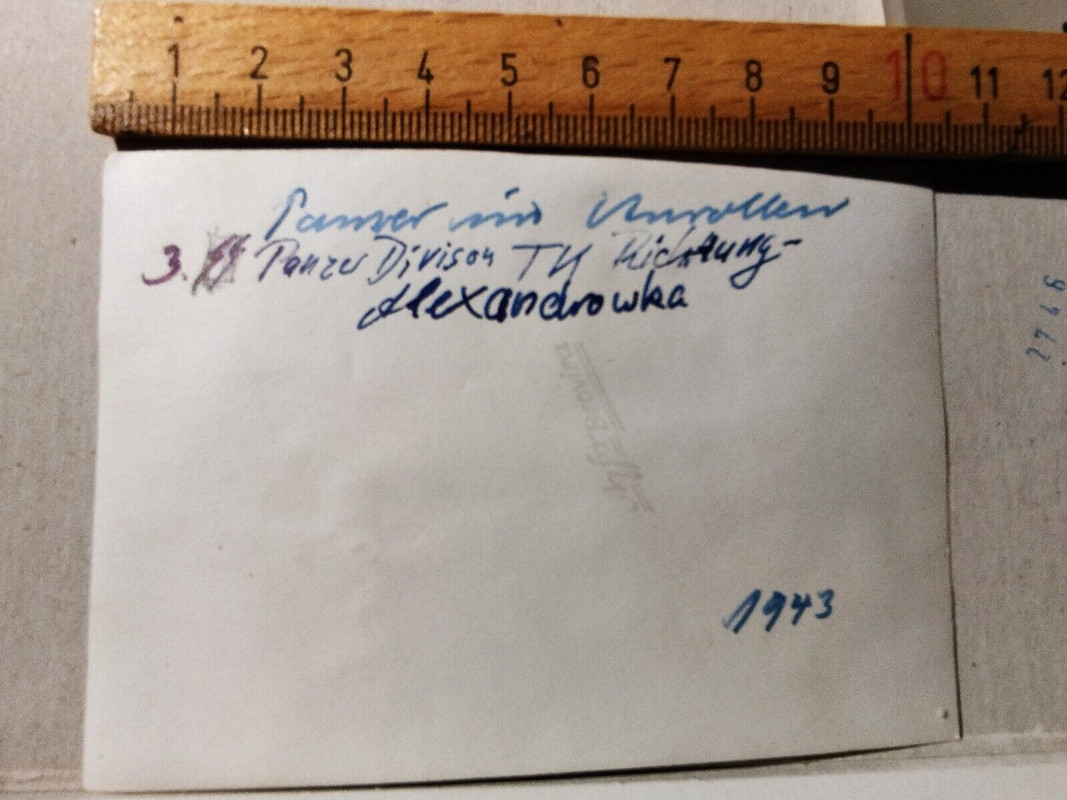 1 2 3 4 5 6 7 8 9 10 11 12
Panzer im Anrollen
3. SS Panzer Divison TK Richtung-
Alexandrowka
2746
1943